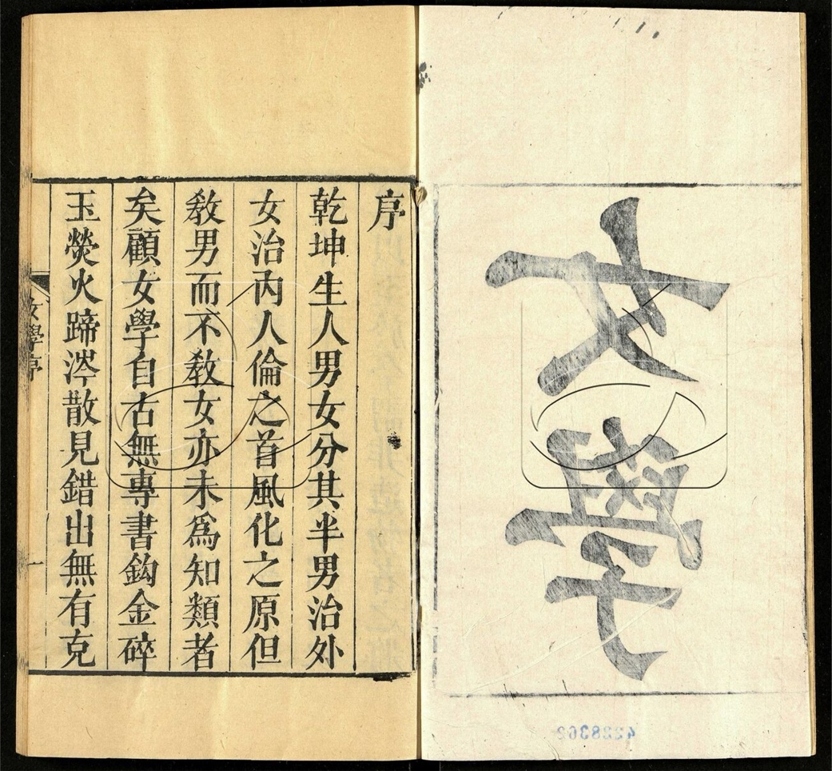 女學
序
乾坤生人男女分其半男治外
女治內人倫之首風化之原但
敎男而不敎女亦未爲知類者
矣顧女學自古無專書鈎金碎
玉熒火蹄涔散見錯出無有克
女學序
一